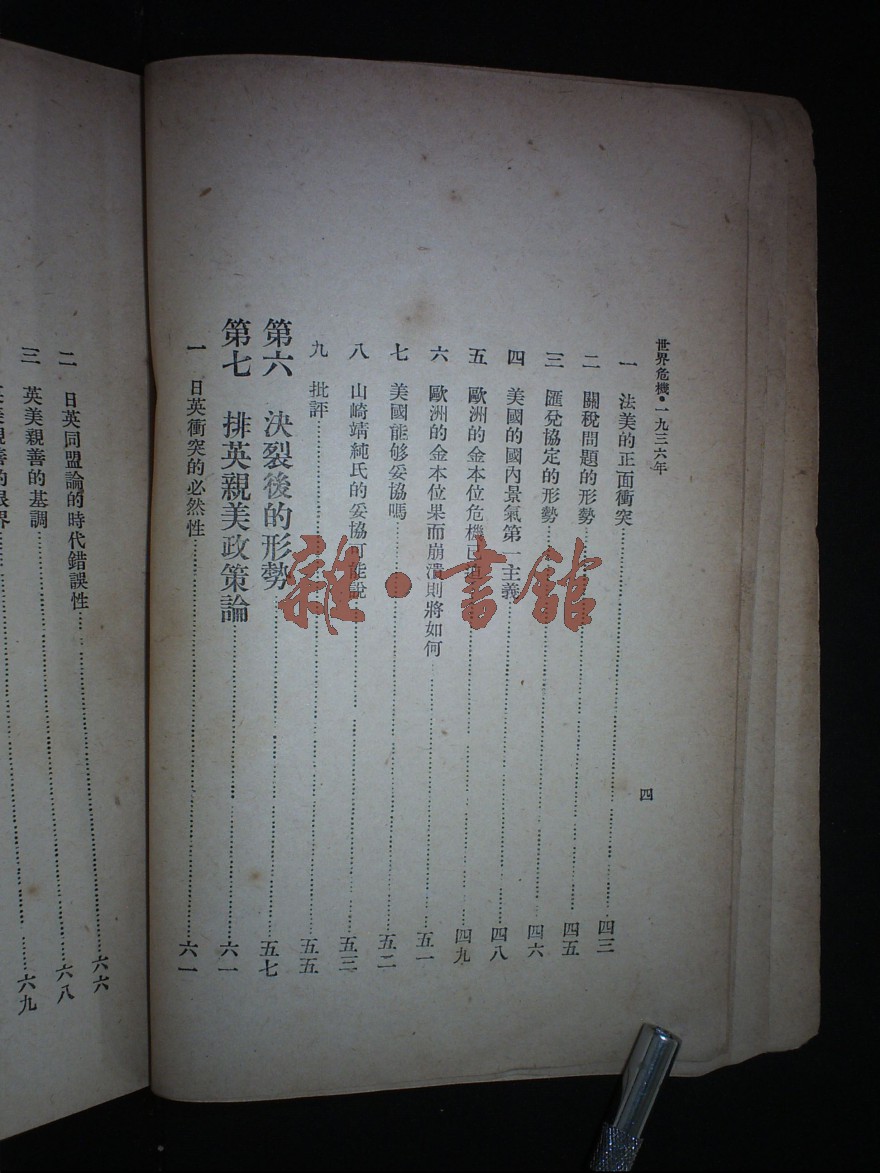 世界危機・一九三六年
四
一 法美的正面衝突……四三
二 關稅問題的形勢……四五
三 匯兌協定的形勢……四六
四 美國的國內景氣第一主義……四八
五 歐洲的金本位危機已……四九
六 歐洲的金本位果而崩潰則將如何……五一
七 美國能够妥協嗎……五二
八 山崎靖純氏的妥協可能說……五三
九 批評……五五
第六 決裂後的形勢……五七
第七 排英親美政策論……六一
一 日英衝突的必然性……六一
二 日英同盟論的時代錯誤性……六六
三 英美親善的基調……六八
英美親善的限界……六九
雜・書館